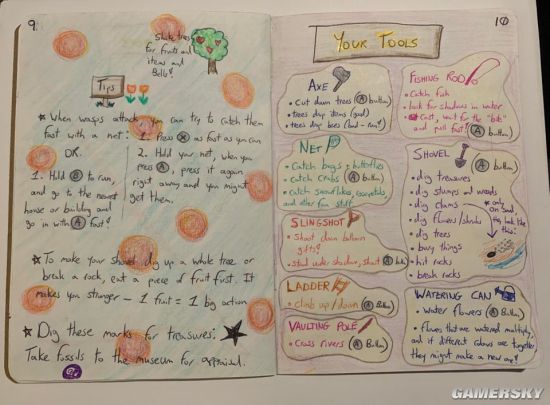 9
Shake trees
for fruits and
items and
Bells!
Tips
★ When wasps attack you can try to catch them
fast with a net:
1. Press Ⓧ as fast as you can
OR
2. Hold your net, when you
press Ⓐ, press it again
right away and you might
get them.
1. Hold Ⓑ to run,
and go to the nearest
house or building and
go in with Ⓐ fast!
★ To make your shovel dig up a whole tree or
break a rock, eat a piece of fruit first. It
makes you stronger - 1 fruit = 1 big action
★ Dig these marks for treasures:
Take fossils to the museum for appraisal.
10
YOUR TOOLS
AXE
• Cut down trees (Ⓐ button)
• trees drop items (good)
• trees drop bees (bad - run!)
NET
• Catch bugs + butterflies
• Catch crabs (Ⓐ button)
• Catch snowflakes,
and other fun stuff
SLINGSHOT
• Shoot down balloon
gifts!
• stand under shadow, shoot (Ⓐ button)
LADDER
• Climb up/down (Ⓐ Button)
VAULTING POLE
• Cross rivers (Ⓐ Button)
FISHING ROD
• Catch fish
• look for shadows in water
• Cast, wait for the "bob"
and pull fast! (Ⓐ button)
SHOVEL
(Ⓐ button)
• dig treasures
• dig stumps and weeds
• dig clams
• dig flowers/shrubs
• dig trees
• bury things
• hit rocks
• break rocks
* only
on sand
they look like
this:
WATERING CAN
• water flowers (Ⓐ Button)
• flowers that are watered multiply,
and if different colours are together
they might make a new one!
GAMERSKY